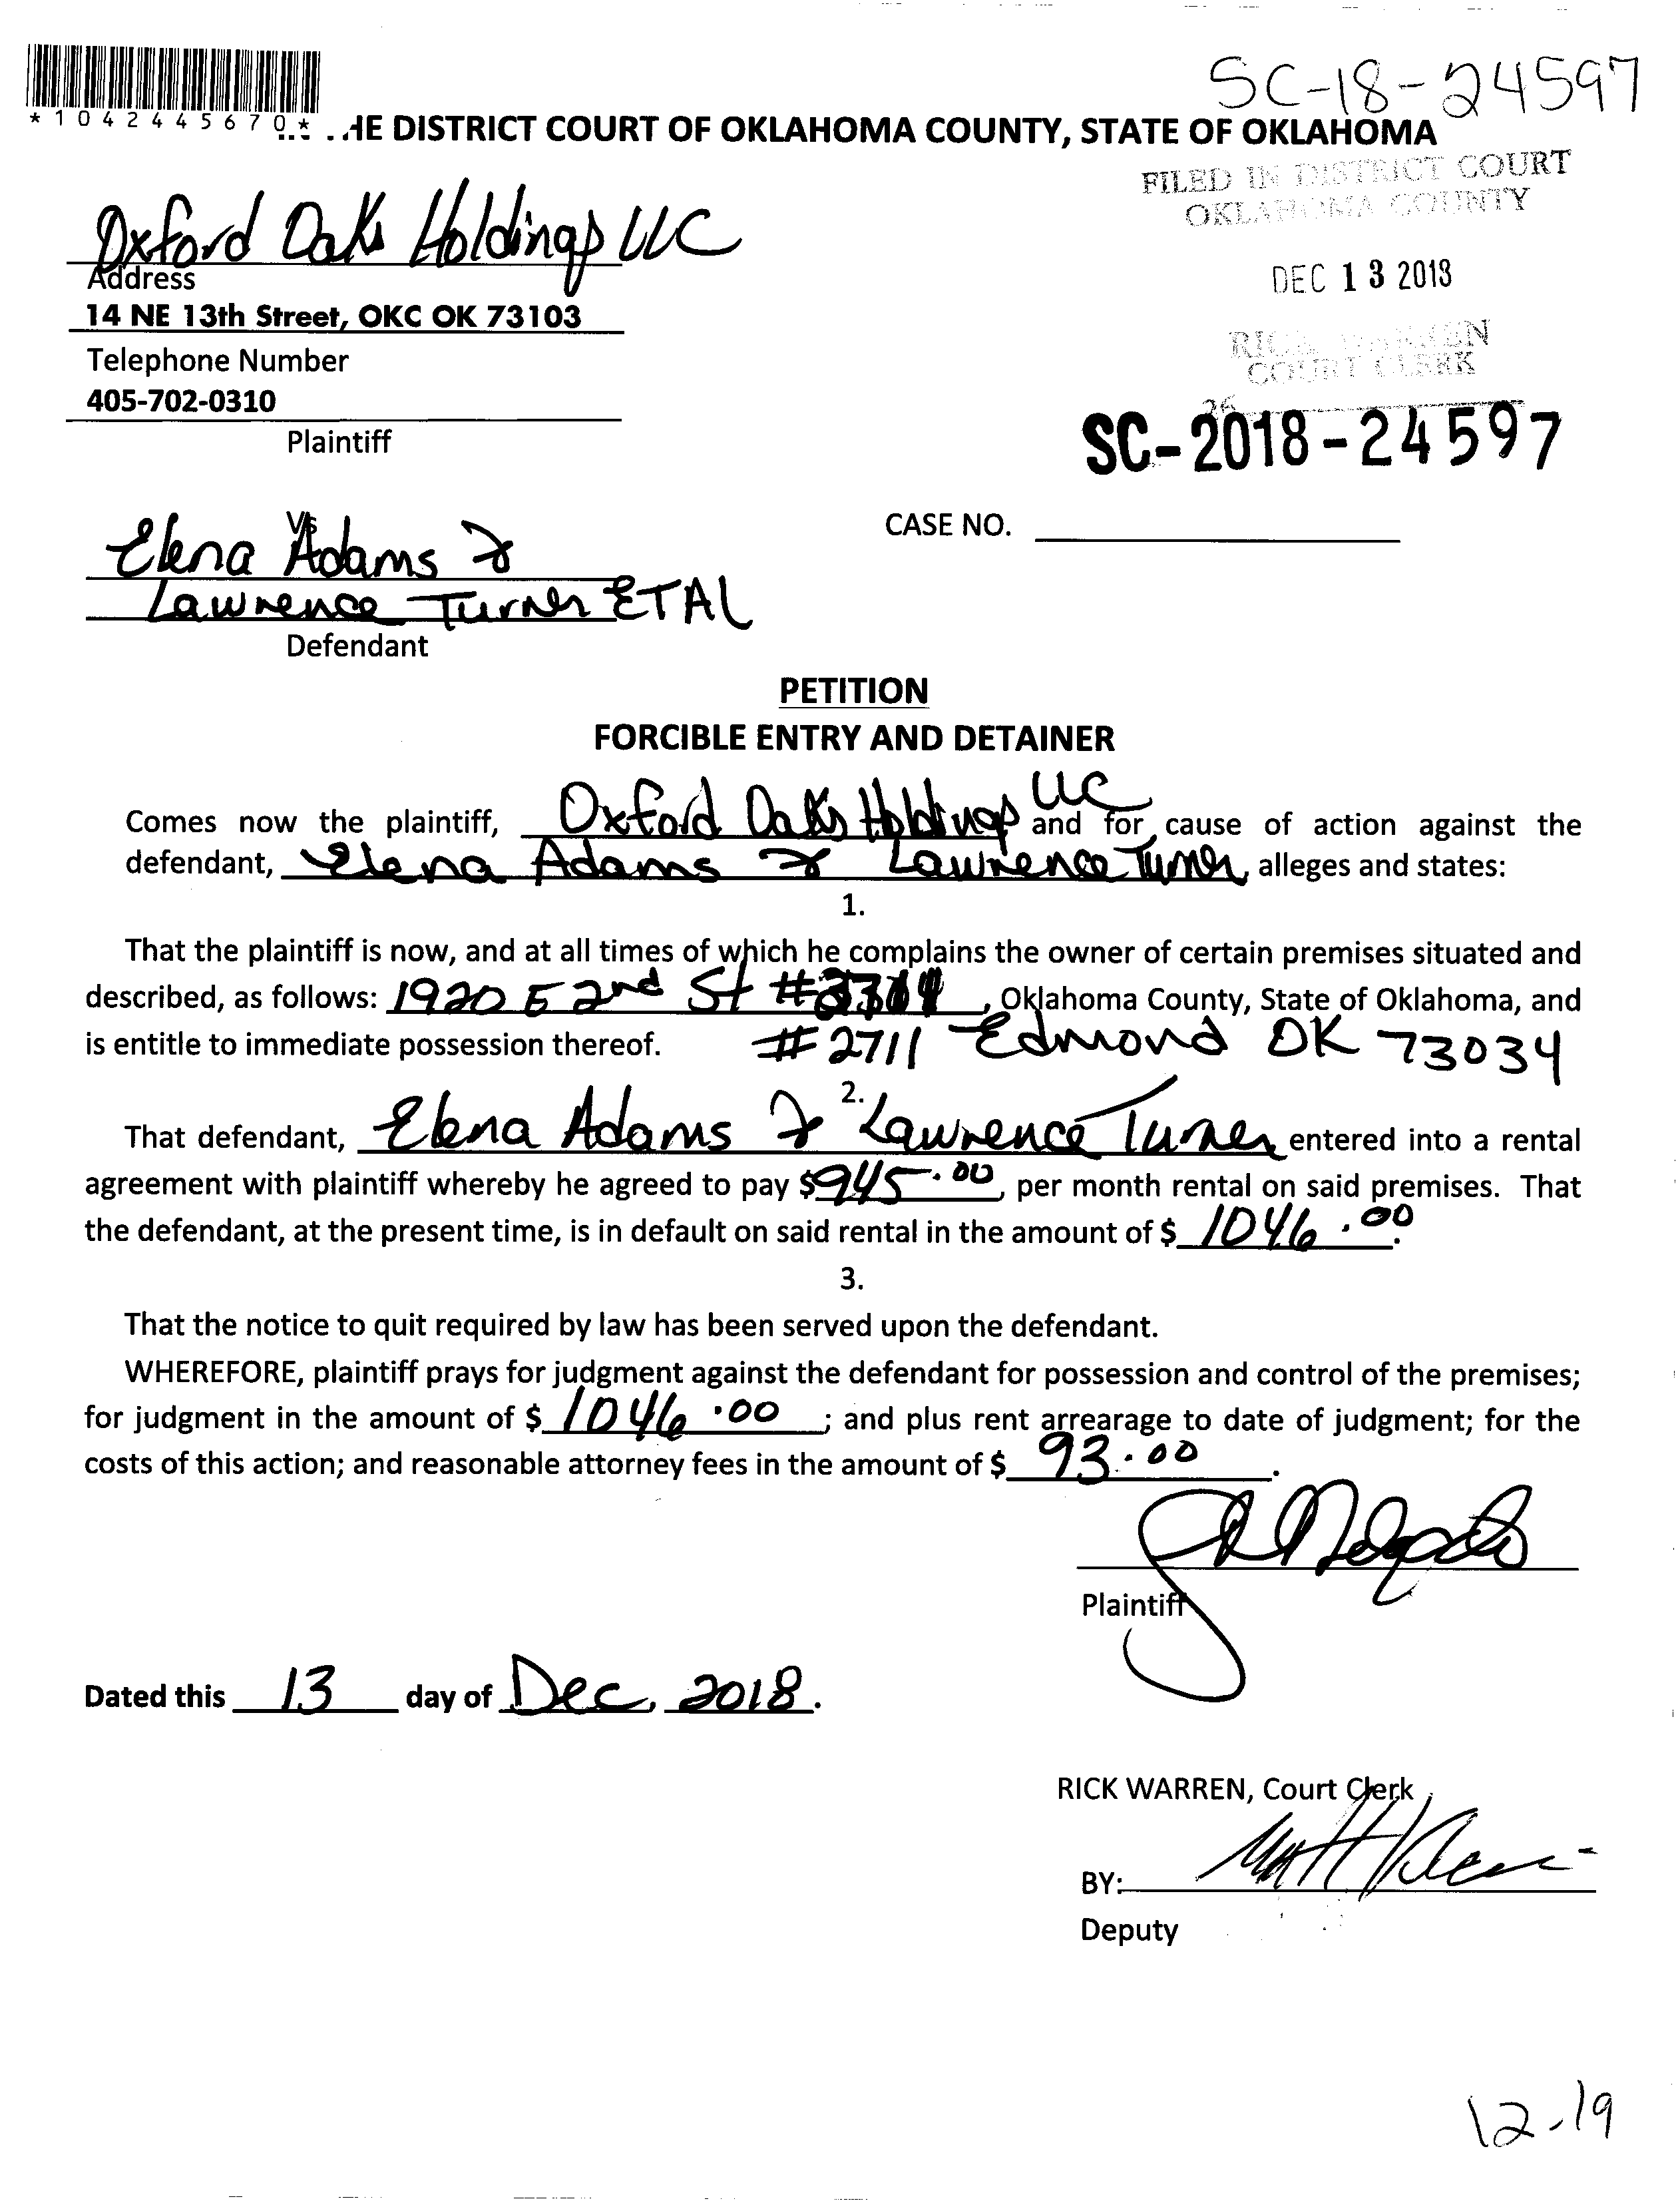 SC-18-24597
*1042445670*
HE DISTRICT COURT OF OKLAHOMA COUNTY, STATE OF OKLAHOMA
FILED IN DISTRICT COURT
OKLAHOMA COUNTY
Oxford Oaks Holdings LLC
Address
DEC 13 2018
14 NE 13th Street, OKC OK 73103
RICK WARREN
COURT CLERK
Telephone Number
405-702-0310
36
Plaintiff
SC-2018-24597
Vs
CASE NO.
Elena Adams &
Lawrence Turner ETAL
Defendant
PETITION
FORCIBLE ENTRY AND DETAINER
Comes now the plaintiff, Oxford Oaks Holdings LLC and for cause of action against the
defendant, Elena Adams & Lawrence Turner, alleges and states:
1.
That the plaintiff is now, and at all times of which he complains the owner of certain premises situated and
described, as follows: 1920 E 2nd St #, Oklahoma County, State of Oklahoma, and
is entitle to immediate possession thereof. #2711 Edmond OK 73034
2.
That defendant, Elena Adams & Lawrence Turner entered into a rental
agreement with plaintiff whereby he agreed to pay $945.00, per month rental on said premises. That
the defendant, at the present time, is in default on said rental in the amount of $ 1046.00.
3.
That the notice to quit required by law has been served upon the defendant.
WHEREFORE, plaintiff prays for judgment against the defendant for possession and control of the premises;
for judgment in the amount of $ 1046.00 ; and plus rent arrearage to date of judgment; for the
costs of this action; and reasonable attorney fees in the amount of $ 93.00.
Plaintiff
Dated this 13 day of Dec, 2018.
RICK WARREN, Court Clerk
BY:
Deputy
12-19